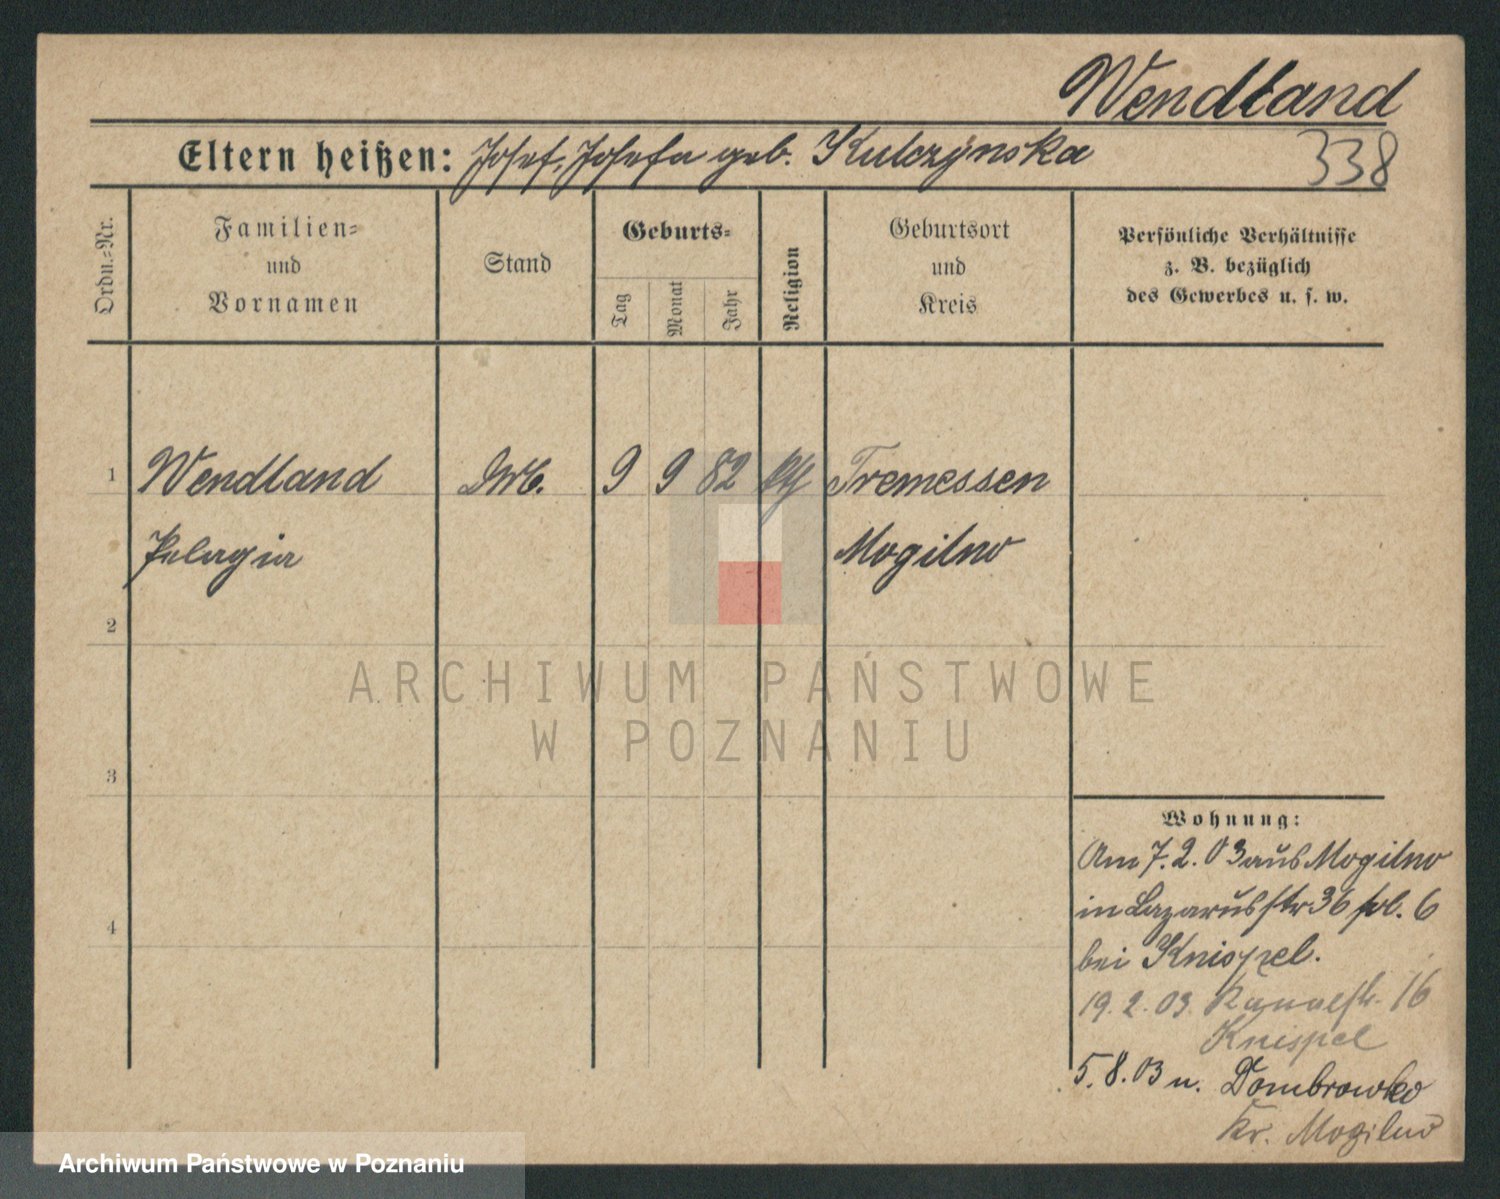 Wendland
Eltern heißen: Josef, Josefa geb. Kulczynska
338
Ordn.-Nr.
Familien-
und
Vornamen
Stand
Geburts-
Tag
Monat
Jahr
Religion
Geburtsort
und
Kreis
Persönliche Verhältnisse
z. B. bezüglich
des Gewerbes u. s. w.
1 Wendland 9 9 82 Tremessen
Pelagia Mogilno
2
ARCHIWUM PAŃSTWOWE
W POZNANIU
3
Wohnung:
Am 7. 2. 03 aus Mogilno
in Lazarusstr 36 6
bei Knispel.
4
19. 2. 03. Kanalstr. 16
Knispel
5. 8. 03 n. Dombrowko
Kr. Mogilno
Archiwum Państwowe w Poznaniu